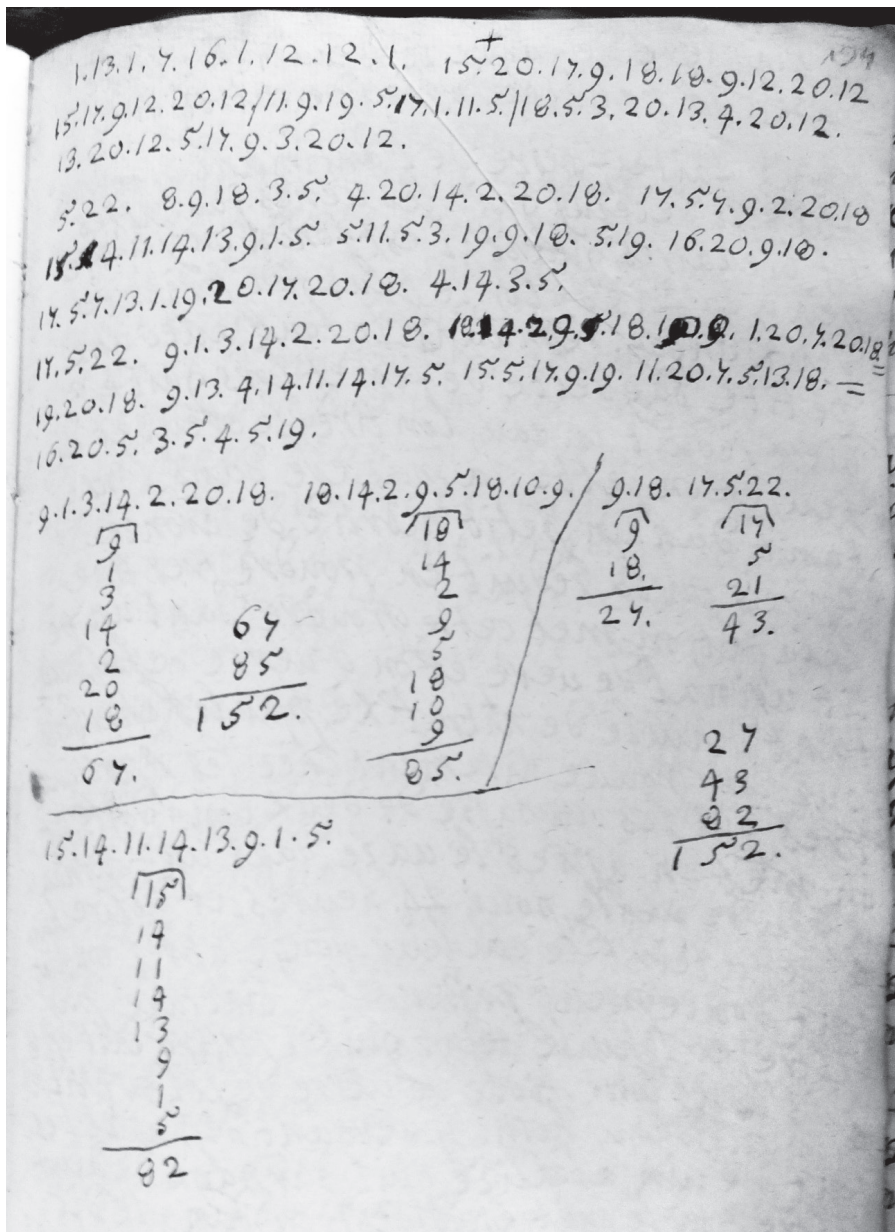 194
1.13.1.7.16.1.12.12.1. + 15.20.17.9.18.18.9.12.20.12
15.17.9.12.20.12/11.9.19.5.17.1.11.5/18.5.3.20.13.4.20.12.
13.20.12.5.17.9.3.20.12.
5.22. 8.9.18.3.5. 4.20.14.2.20.18. 17.5.7.9.2.20.18
15.14.11.14.13.9.1.5. 5.11.5.3.19.9.18. 5.19. 16.20.9.18.
17.5.7.13.1.19.20.17.20.18. 4.14.3.5.
17.5.22. 9.1.3.14.2.20.18. 18.14.2.9.5.18.10.9. 1.20.7.20.18=
19.20.18. 9.13.4.14.11.14.17.5. 15.5.17.9.19. 11.20.7.5.13.18.=
16.20.5. 3.5.4.5.19.
9.1.3.14.2.20.18. 18.14.2.9.5.18.10.9.
9
1
3
14
2
20
18
67.
67
85
152.
18
14
2
9
5
18
10
9
85.
9.18. 17.5.22.
9
18.
27.
17
5
21
43.
27
43
82
152.
15.14.11.14.13.9.1.5.
15
14
11
14
13
9
1
5
82